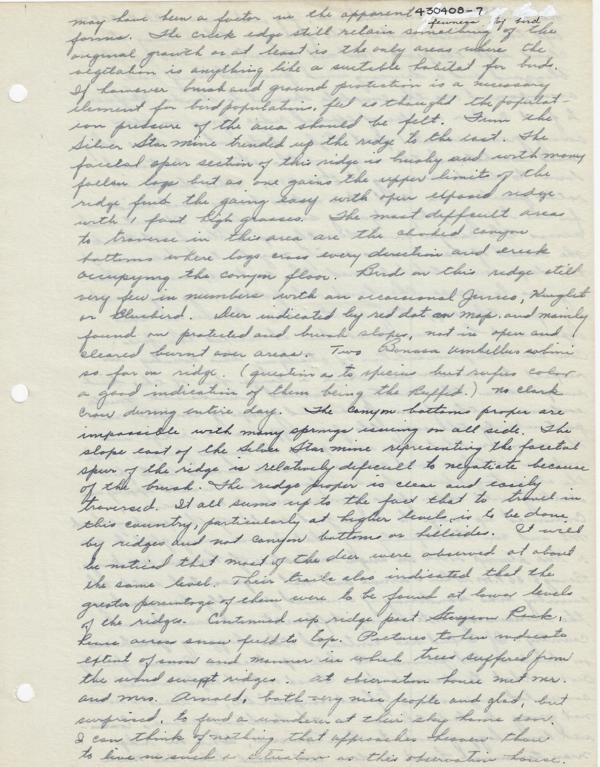 430408-7
may have been a factor in the apparent fewness of bird
forms. The creek edge still retain something of the
original growth or at least is the only areas where the
vegetation is anything like a suitable habitat for birds.
If however brush and ground protection is a necessary
element for bird population, feel as thought the populat-
ion pressure of the area should be felt. From the
Silver Star mine trended up the ridge to the east. The
facetal spur section of this ridge is brushy and with many
fallen logs but as one gains the upper limits of the
ridge finds the going easy with open exposed ridge
with 1 foot high grasses. The most difficult areas
to traverse in this area are the choked canyon
bottoms where logs cross every direction and creek
occupying the canyon floor. Bird on this ridge still
very few in numbers with an occasional Junco, Kinglet
or Bluebird. Deer indicated by red dot on map and mainly
found on protected and brush slopes, not in open and
cleared burnt over areas. Two Bonasa umbellus
so far on ridge. (question as to species but rufus color
a good indication of them being the Ruffed.) No clark
crow during entire day. The canyon bottoms proper are
impassible with many springs issuing on all side. The
slope east of the Silver Star mine representing the facetal
spur of the ridge is relatively deficult to negotiate because
of the brush. The ridge proper is clear and easily
traversed. It all sums up to the fact that to travel in
this country, particularly at higher levels, is to be done
by ridges and not canyon bottoms or hillsides. It will
be noticed that most of the deer were observed at about
the same level. Their trails also indicated that the
greater percentage of them were to be found at lower levels
of the ridges. Continued up ridge past Sturgeon Rock,
hence across snow field to top. Pictures taken indicate
extent of snow and manner in which trees suffered from
the wind swept ridges. At observation house met Mr.
and Mrs. Arnold, both very nice people and glad, but
surprised, to find a wanderer at their sky home door.
I can think of nothing that approaches Heaven than
to live in such a situation as this observation house.